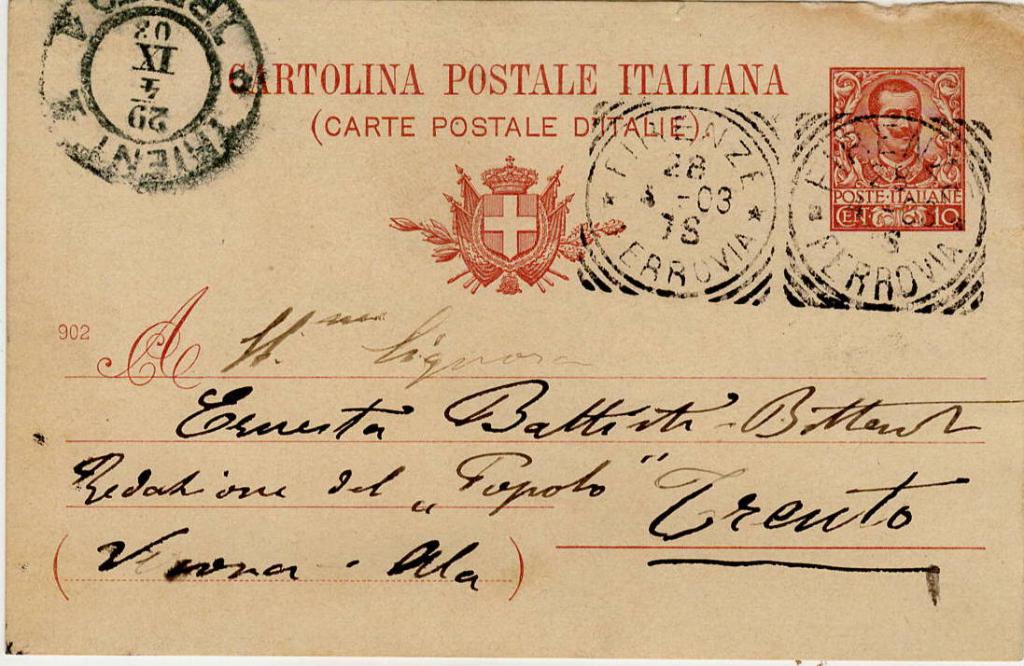 CARTOLINA POSTALE ITALIANA
(CARTE POSTALE D'ITALIE)
TRIENT
29
4
IX
03
FIRENZE
28
-03
FERROVIA
FERROVIA
POSTE·ITALIANE
CEN 10
902
A Ill.ma Signora
Ernesta Battisti - Bittanti
Redazione del „Popolo” Trento
(Verona - Ala)